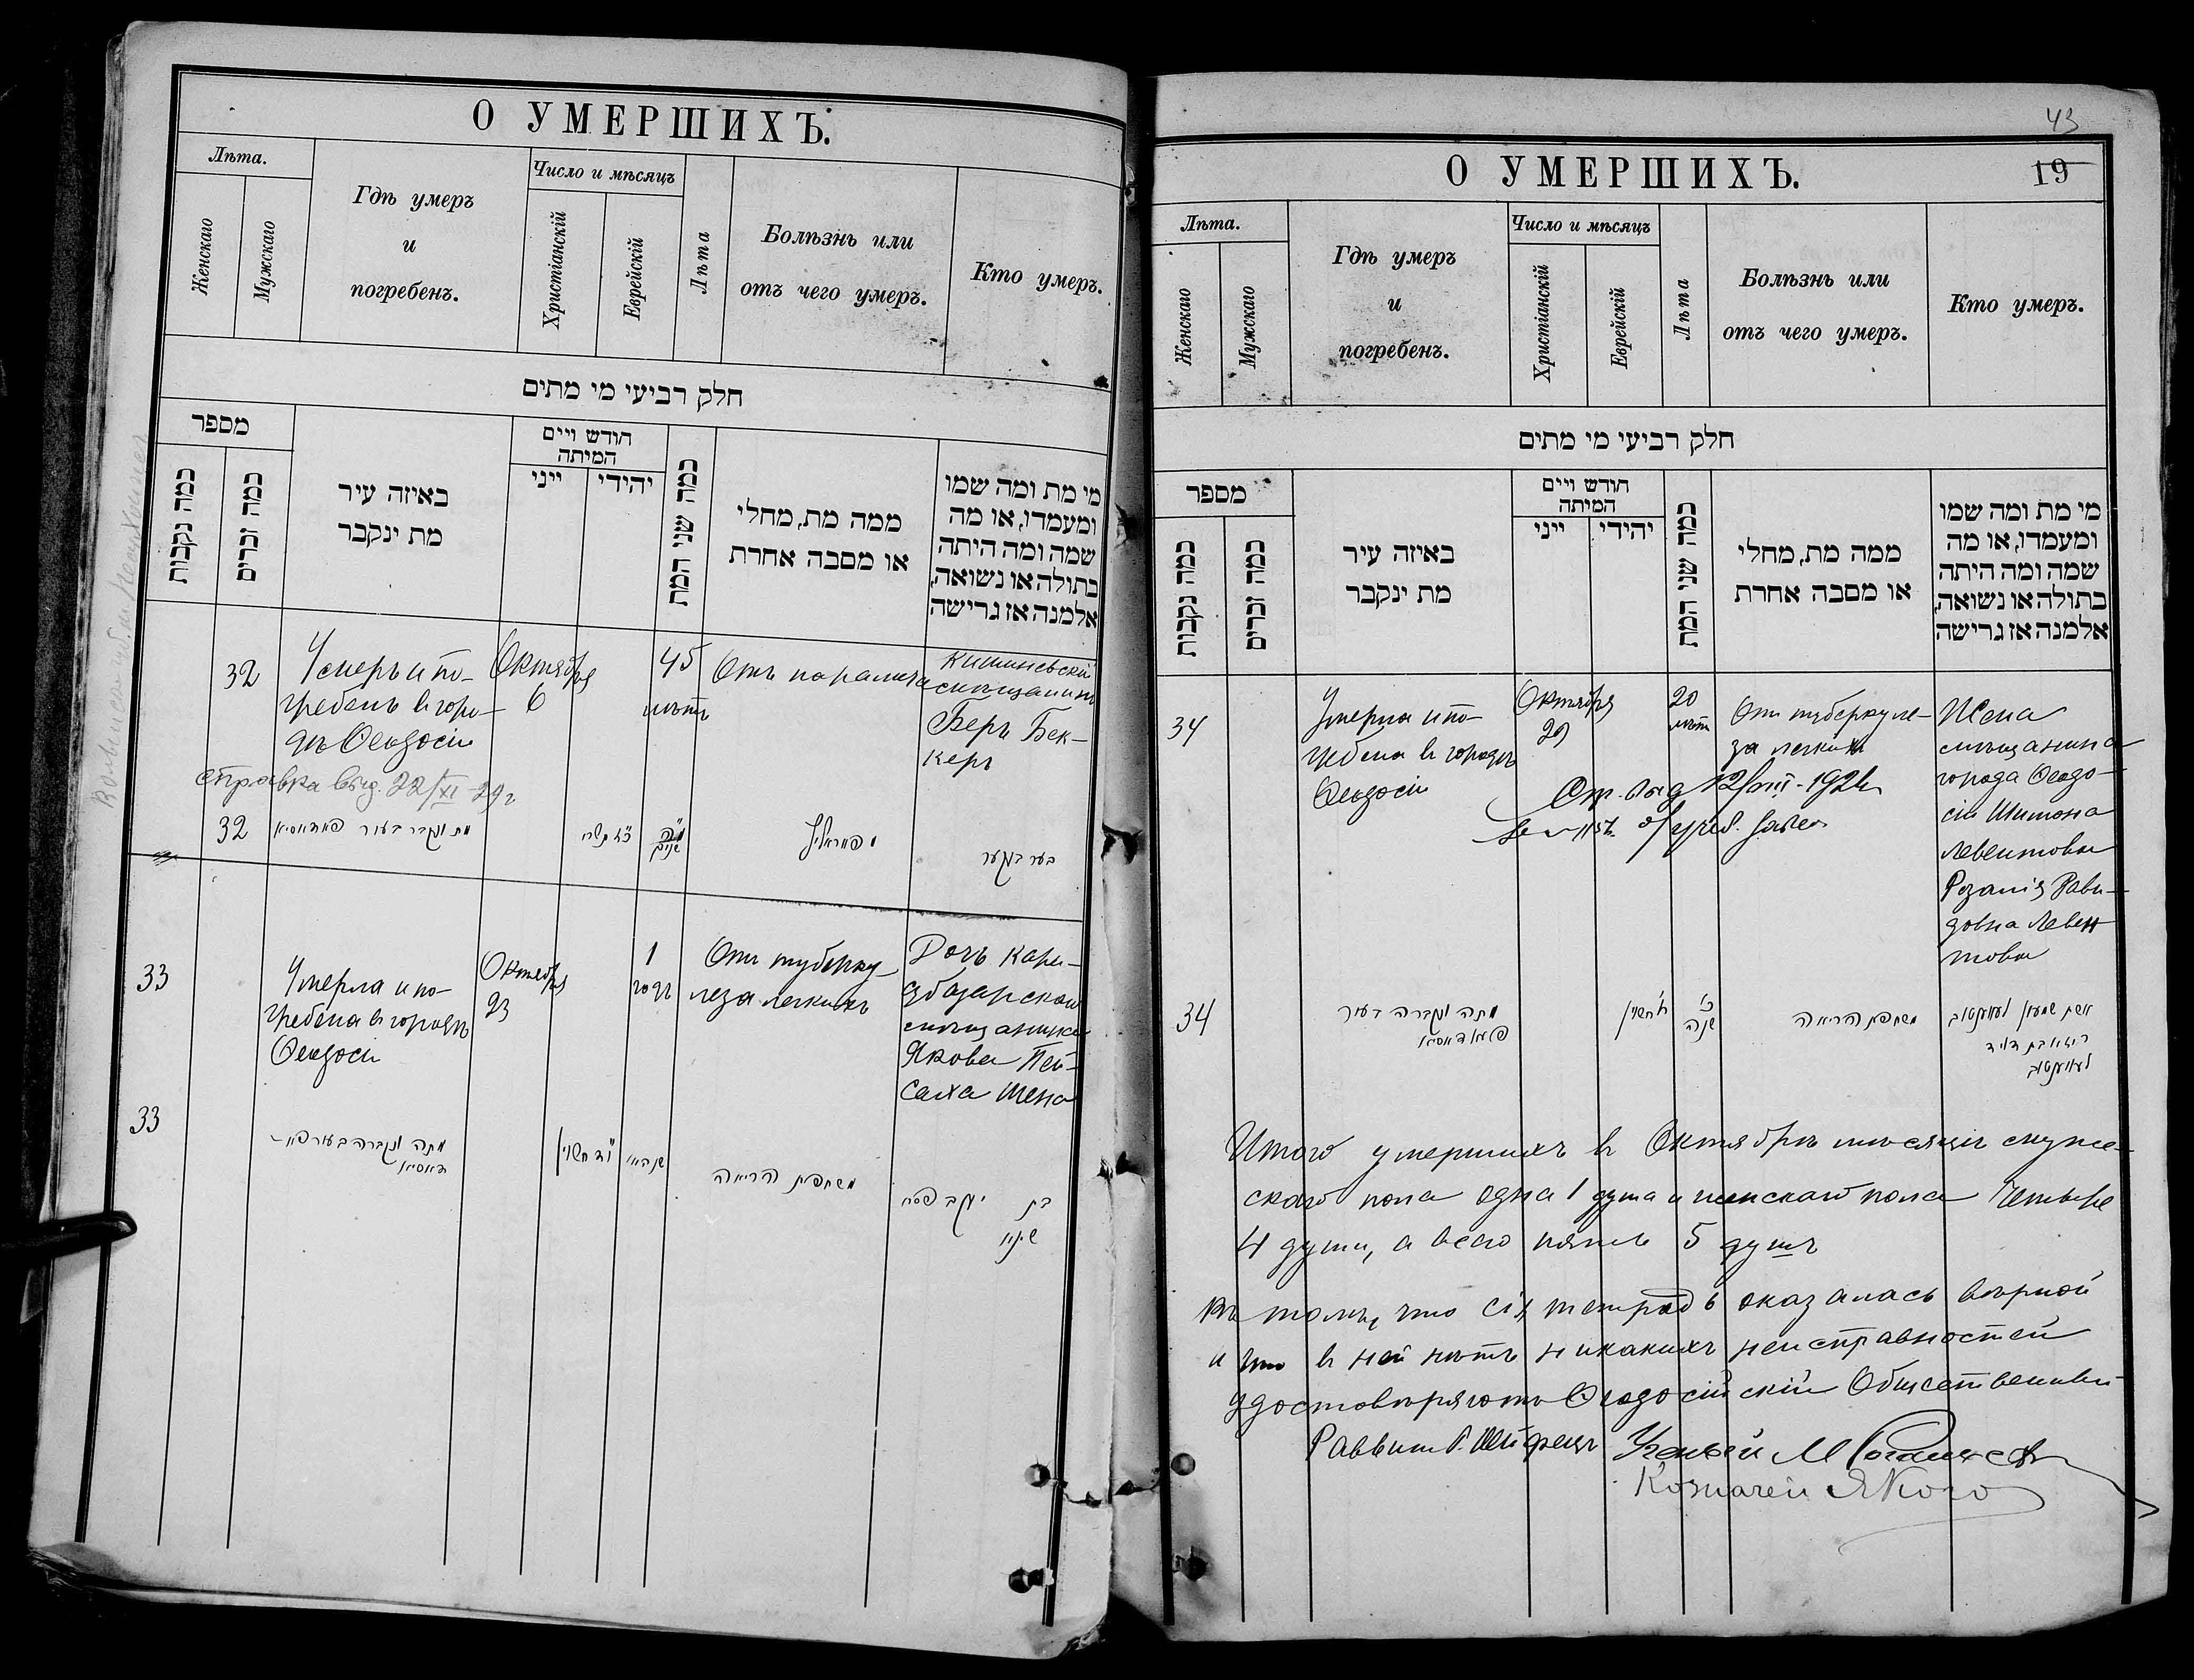 О УМЕРШИХЪ.
Лѣта.
Женскаго
Мужскаго
Гдѣ умеръ
и
погребенъ.
Число и мѣсяцъ
Христіанскій
Еврейскій
Лѣта
Болѣзнь или
отъ чего умеръ.
Кто умеръ.
חלק רביעי מי מתים
מספר
כמה נקבות
כמה זכרים
באיזה עיר
מת ינקבר
חודש ויים
המיתה
ייני
יהידי
כמה שני המת
ממה מת, מחלי
או מסבה אחרת
מי מת ומה שמו
ומעמדו, או מה
שמה ומה היתה
בתולה או נשואה,
אלמנה אז גרישה
32
Умеръ и по-
гребенъ въ горо-
дѣ Ѳеодосіи
Октября
6
45
лѣтъ
Отъ паралича
Кишиневскій
мѣщанинъ
Беръ Бек-
керъ
справка выд. 22/XI 29г
32
מת ונקבר בעיר
תשרי
בער בעקער
33
Умерла и по-
гребена въ городѣ
Ѳеодосіи
Октября
23
1
годъ
Отъ туберку-
леза легкихъ
Дочь Кара-
субазарскаго
мѣщанина
Якова Пей-
саха Шена
33
מתה ונקברה בעיר
חשון
שחפת הריאה
בת יעקב פסח
О УМЕРШИХЪ.
43
19
Лѣта.
Женскаго
Мужскаго
Гдѣ умеръ
и
погребенъ.
Число и мѣсяцъ
Христіанскій
Еврейскій
Лѣта
Болѣзнь или
отъ чего умеръ.
Кто умеръ.
חלק רביעי מי מתים
מספר
כמה נקבות
כמה זכרים
באיזה עיר
מת ינקבר
חודש ויים
המיתה
ייני
יהידי
כמה שני המת
ממה מת, מחלי
או מסבה אחרת
מי מת ומה שמו
ומעמדו, או מה
שמה ומה היתה
בתולה או נשואה,
אלמנה אז גרישה
34
Умерла и по-
гребена въ городѣ
Ѳеодосіи
Октября
29
20
лѣтъ
Отъ туберкуле-
за легкихъ
Жена
мѣщанина
города Ѳеодо-
сіи Шимона
Левентова
Розалія Дави-
довна Левен
това
34
מתה ונקברה בעיר
חשון
שנה
שחפת הריאה
אשת שמעון
בת דוד
Итого умершихъ въ Октябрѣ мѣсяцѣ муже-
скаго пола одна 1 душа и женскаго пола четыре
4 души, а всего пять 5 душъ
Въ томъ, что сія тетрадь оказалась вѣрной
и что въ ней нѣтъ никакихъ неисправностей
удостовѣряютъ Ѳеодосійскій Общественный
Раввинъ
Ученый
Казначей